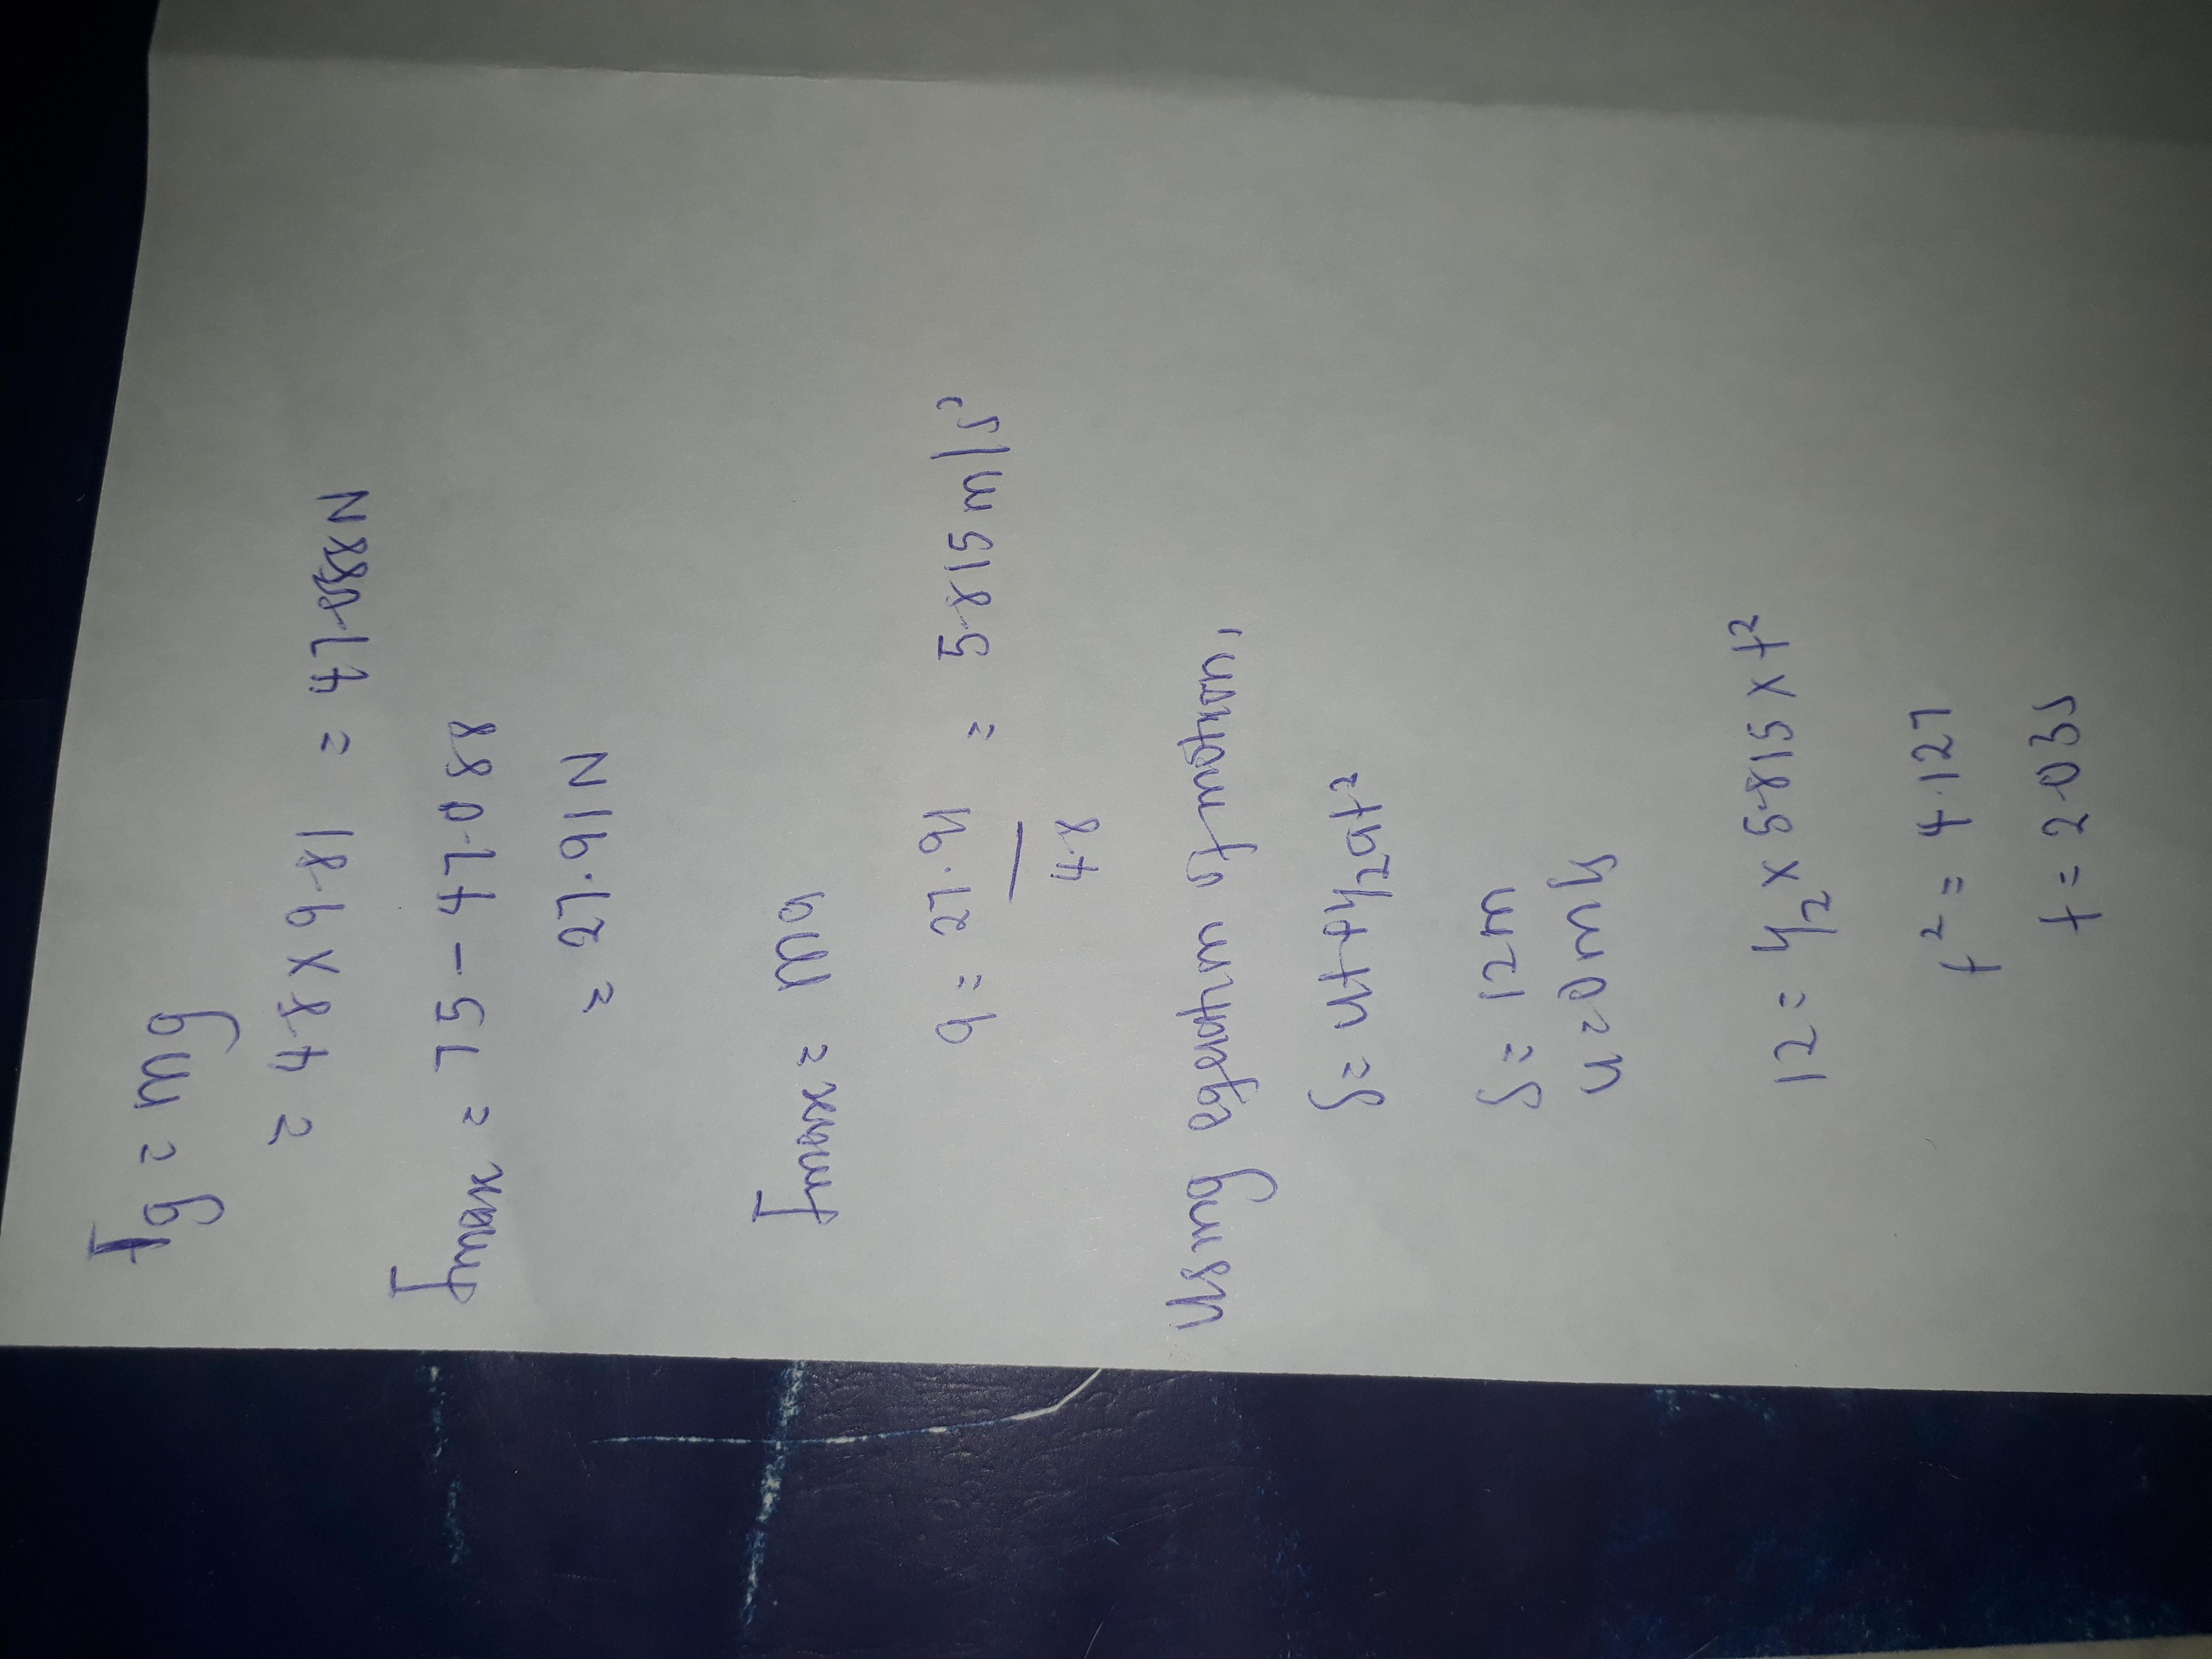 Fg = mg
= 4.8 x 9.81 = 47.088N
Fmax = 75 - 47.088
= 27.91N
Fmax = ma
a = 27.91 = 5.815 m/s²
4.8
Using equation of motion,
S = ut+1/2at²
S = 12m
u = 0m/s
12 = 1/2 x 5.815 x t²
t² = 4.127
t = 2.03s